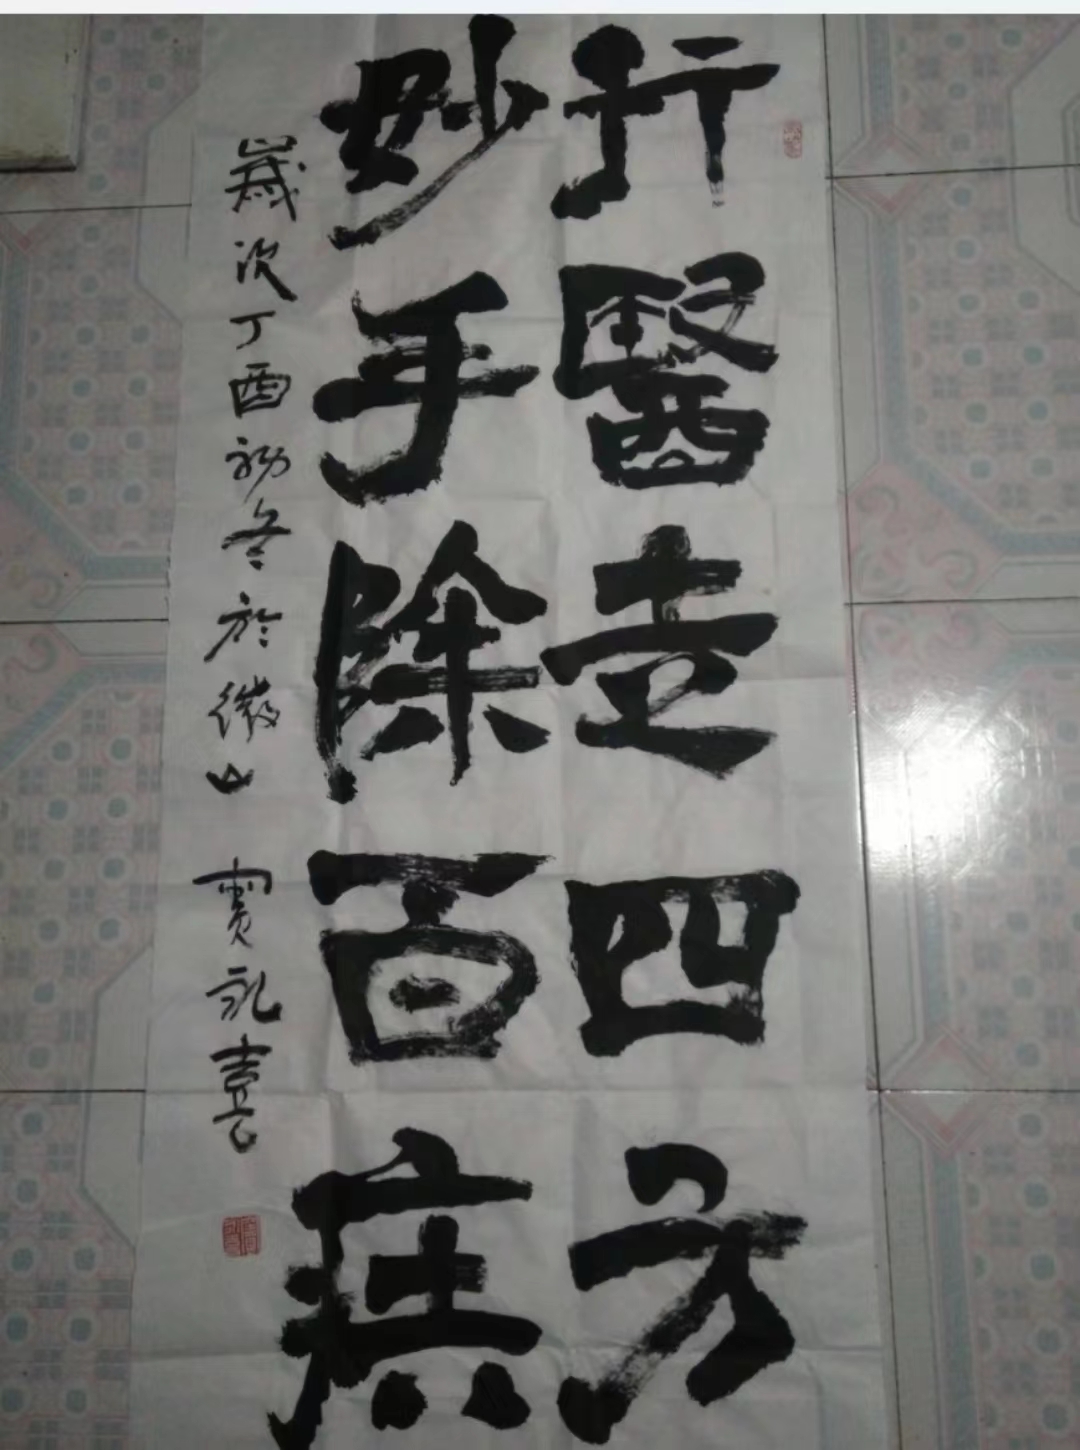 行醫走四方
妙手除百
歲次丁酉初冬於微山 賈礼喜